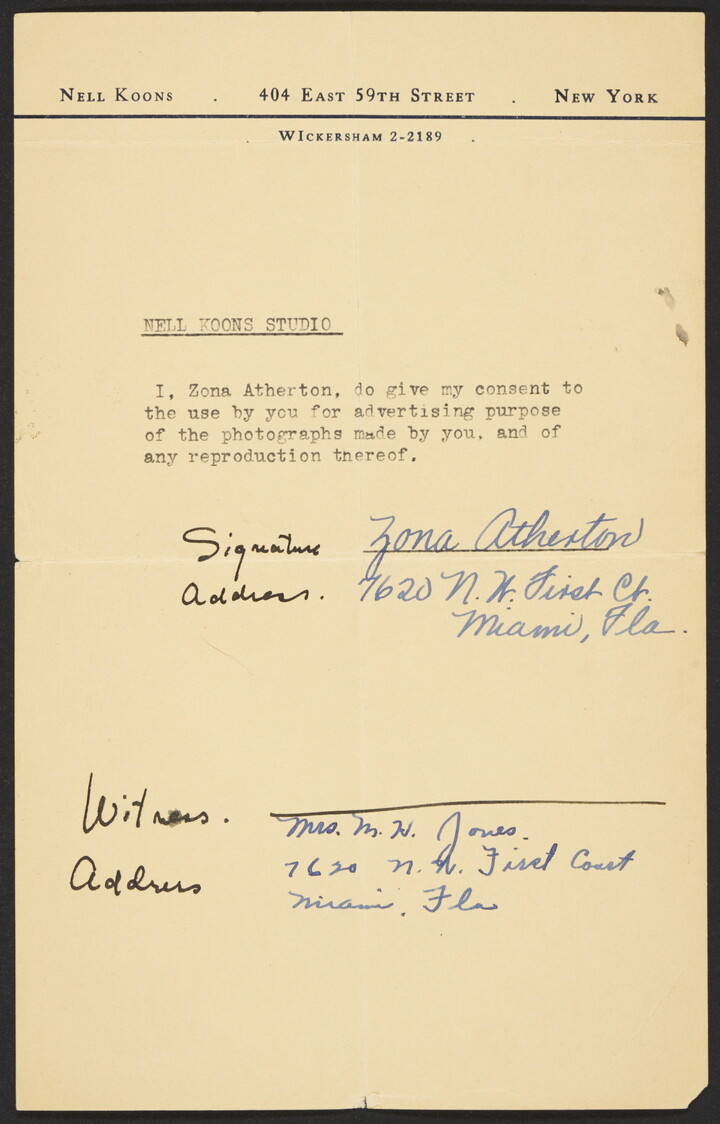 NELL KOONS . 404 EAST 59TH STREET . NEW YORK
. WICKERSHAM 2-2189 .
NELL KOONS STUDIO
I, Zona Atherton, do give my consent to
the use by you for advertising purpose
of the photographs made by you, and of
any reproduction thereof.
Signature Zona Atherton
Address. 7620 N. W. First Ct.
Miami, Fla.
Witness.
Mrs. M. W. Jones.
Address 7620 N. W. First Court
Miami, Fla